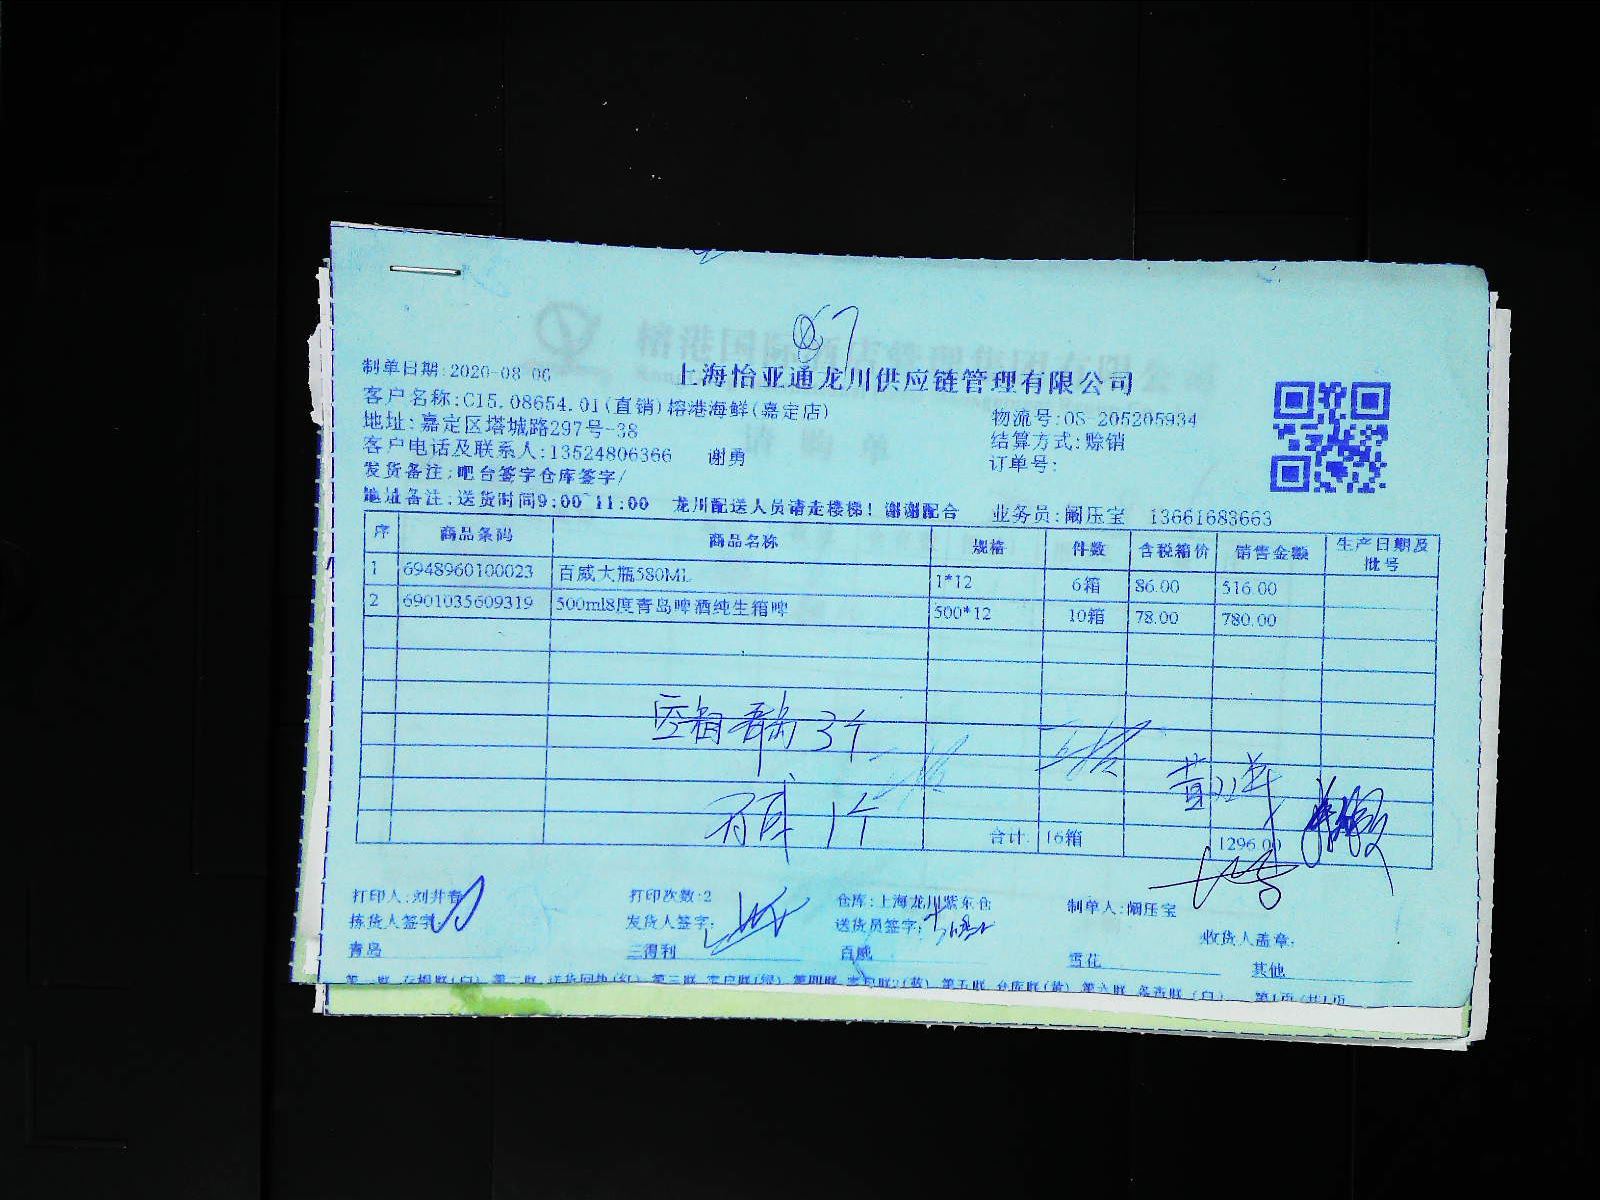 上海怡亚通龙川供应链管理有限公司
制单日期:2020-08-06
客户名称:C15.08654.01(直销)榕港海鲜(嘉定店)
物流号:OS-205205934
地址:嘉定区塔城路297号-38
结算方式:赊销
客户电话及联系人:13524806366 谢勇
订单号:
发货备注:吧台签字仓库签字/
地址备注:送货时间9:00~11:00 龙川配送人员请走楼梯!谢谢配合 业务员:阚压宝 13661683663
序 商品条码 商品名称 规格 件数 含税箱价 销售金额 生产日期及批号
1 6948960100023 百威大瓶580ML 1*12 6箱 86.00 516.00
2 6901035609319 500ml8度青岛啤酒纯生箱啤 500*12 10箱 78.00 780.00
空箱青岛3个
百威 1个
合计: 16箱 1296.00
打印人:刘井春 打印次数:2 仓库:上海龙川紫东仓 制单人:阚压宝
拣货人签字: 发货人签字: 送货员签字: 收货人盖章:
青岛 三得利 百威 雪花 其他
第一联 存根联(白) 第二联 送货回执(红) 第三联 客户联(绿) 第四联 客户联2(蓝) 第五联 仓库联(黄) 第六联 备查联(白) 第1页/共1页